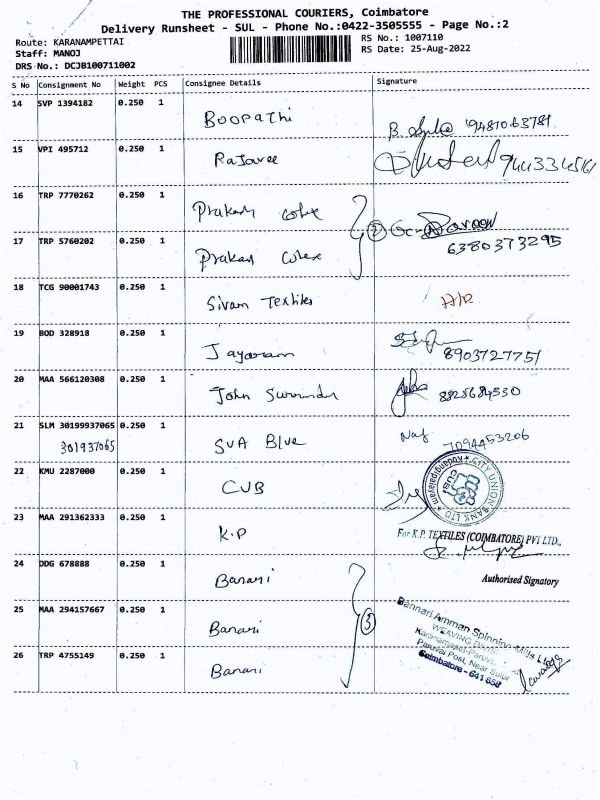 THE PROFESSIONAL COURIERS, Coimbatore
Delivery Runsheet - SUL - Phone No.:0422-3505555 - Page No.:2
Route: KARANAMPETTAI
RS No.: 1007110
Staff: MANOJ
RS Date: 25-Aug-2022
DRS No.: DCJB100711002
S No Consignment No Weight PCS Consignee Details Signature
14 SVP 1394182 0.250 1 Boopathi B. 9487063781
15 VPI 495712 0.250 1
16 TRP 7770262 0.250 1 Prakash
17 TRP 5760202 0.250 1 Prakash 6380373295
18 TCG 90001743 0.250 1 Sivam Textiles
19 BOD 328918 0.250 1 Jayaram 8903727751
20 MAA 566120308 0.250 1 John
21 SLM 30199937065 0.250 1 SVA Blue 7094453206
301937065
22 KMU 2287000 0.250 1 CUB
CITY UNION BANK LTD
CUB
23 MAA 291362333 0.250 1 K.P
For K.P. TEXTILES (COIMBATORE) PVT LTD.,
24 DDG 678888 0.250 1 Banari
Authorised Signatory
25 MAA 294157667 0.250 1 Banari 3
26 TRP 4755149 0.250 1 Banari
Bannari Amman Spinning Mills Ltd
WEAVING
Paruvai Post, Near Sulur
Coimbatore - 641 658